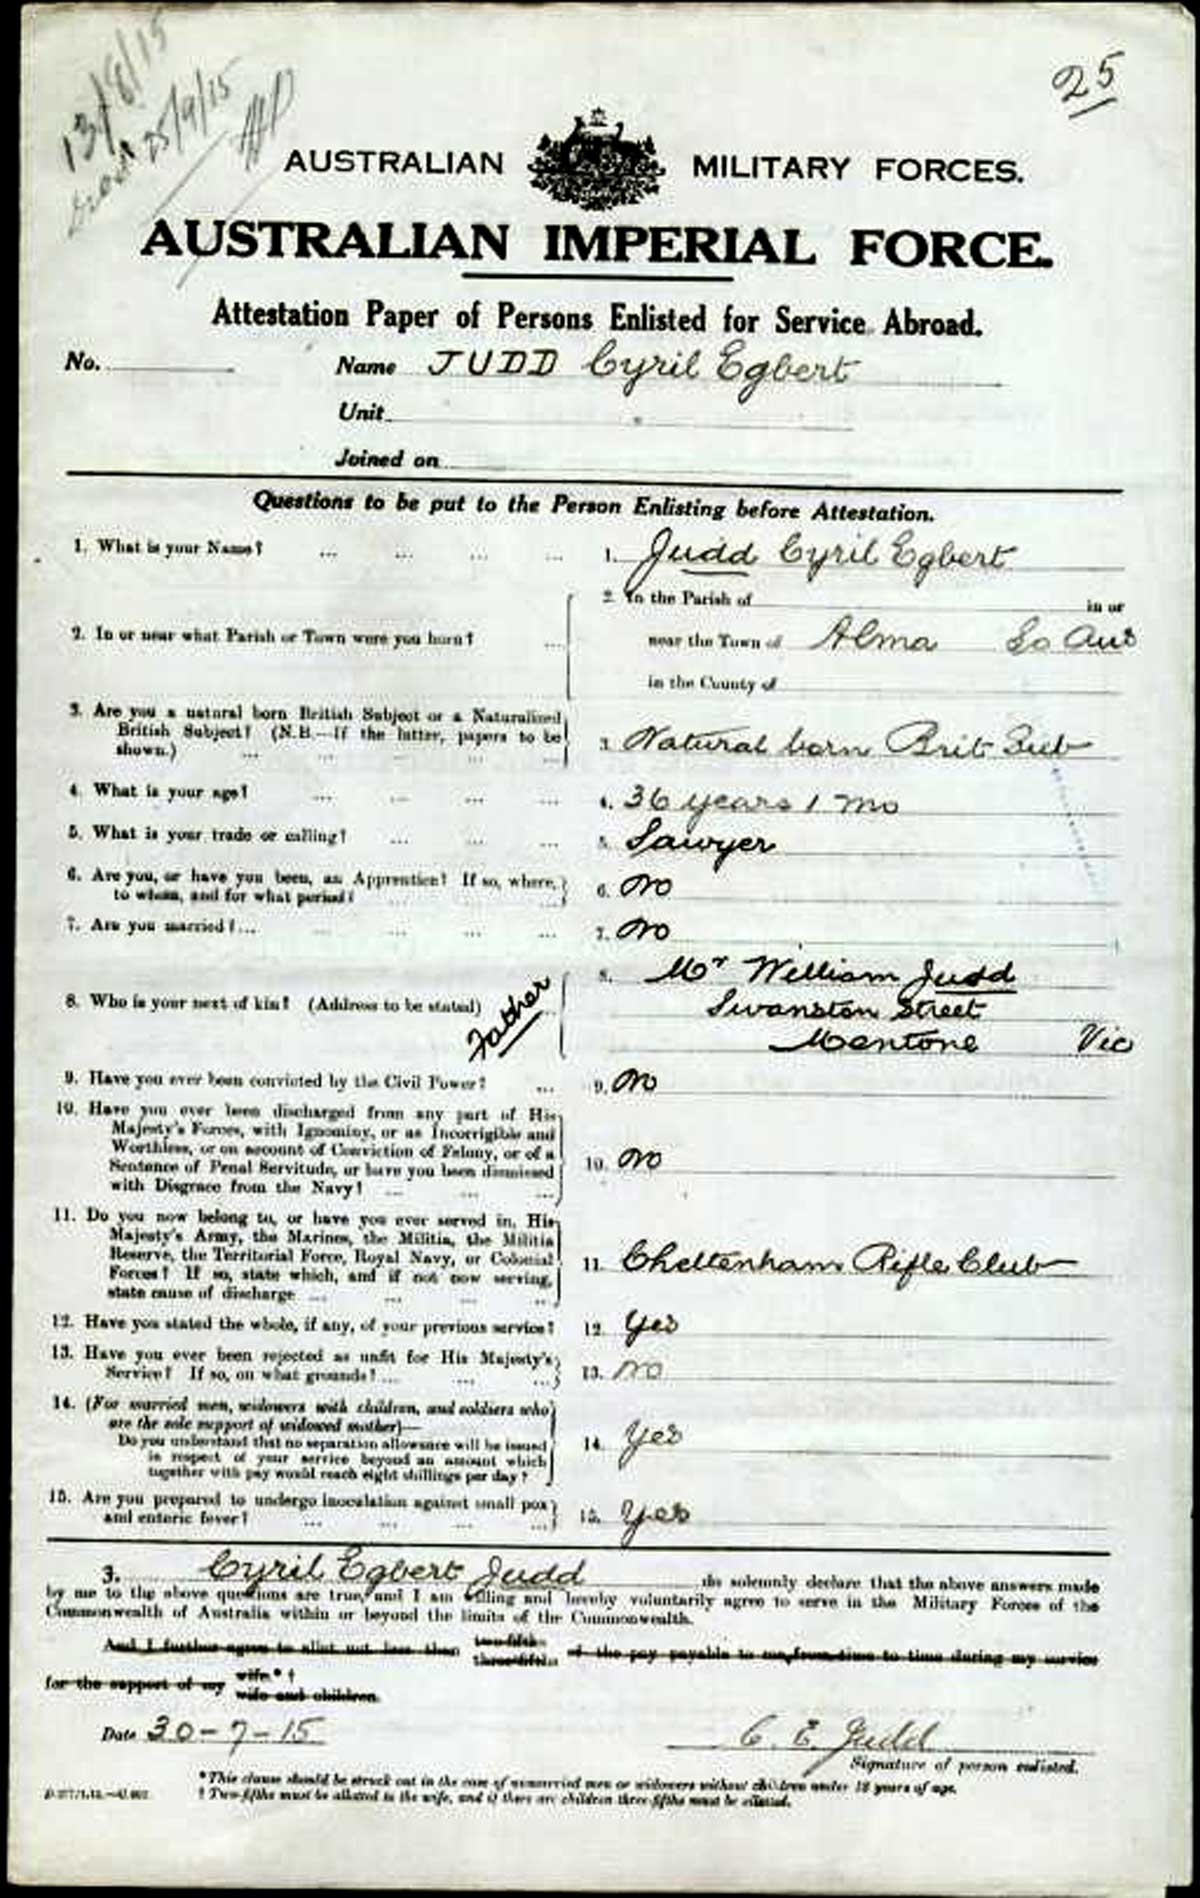 13/8/15
25/9/15
25
AUSTRALIAN MILITARY FORCES.
AUSTRALIAN IMPERIAL FORCE.
Attestation Paper of Persons Enlisted for Service Abroad.
No. Name JUDD Cyril Egbert
Unit
Joined on
Questions to be put to the Person Enlisting before Attestation.
1. What is your Name? ... ... ... ... 1. Judd Cyril Egbert
2. In or near what Parish or Town were you born? ... 2. In the Parish of in or
near the Town of Alma So Aus
in the County of
3. Are you a natural born British Subject or a Naturalized
British Subject? (N.B.—If the latter, papers to be
shown.) ... ... ... ... 3. Natural born Brit Sub
4. What is your age? ... ... ... ... 4. 36 years 1 mo
5. What is your trade or calling? ... ... ... 5. Sawyer
6. Are you, or have you been, an Apprentice? If so, where,
to whom, and for what period? ... ... ... 6. No
7. Are you married? ... ... ... ... ... 7. No
8. Who is your next of kin? (Address to be stated) ... Father 8. Mr William Judd
Swanston Street
Mentone Vic
9. Have you ever been convicted by the Civil Power? ... 9. No
10. Have you ever been discharged from any part of His
Majesty's Forces, with Ignominy, or as Incorrigible and
Worthless, or on account of Conviction of Felony, or of a
Sentence of Penal Servitude, or have you been dismissed
with Disgrace from the Navy? ... ... ... 10. No
11. Do you now belong to, or have you ever served in, His
Majesty's Army, the Marines, the Militia, the Militia
Reserve, the Territorial Force, Royal Navy, or Colonial
Forces? If so, state which, and if not now serving,
state cause of discharge ... ... ... ... 11. Cheltenham Rifle Club
12. Have you stated the whole, if any, of your previous service? 12. Yes
13. Have you ever been rejected as unfit for His Majesty's
Service? If so, on what grounds? ... ... ... 13. No
14. (For married men, widowers with children, and soldiers who
are the sole support of widowed mother)—
Do you understand that no separation allowance will be issued
in respect of your service beyond an amount which
together with pay would reach eight shillings per day? 14. Yes
15. Are you prepared to undergo inoculation against small pox
and enteric fever? ... ... ... ... 15. Yes
3. Cyril Egbert Judd do solemnly declare that the above answers made
by me to the above questions are true, and I am willing and hereby voluntarily agree to serve in the Military Forces of the
Commonwealth of Australia within or beyond the limits of the Commonwealth.
And I further agree to allot not less than two-fifths three-fifths of the pay payable to me from time to time during my service
for the support of my wife.* † wife and children.
Date 30-7-15 C. E. Judd
Signature of person enlisted.
*This clause should be struck out in the case of unmarried men or widowers without children under 18 years of age.
† Two-fifths must be allotted to the wife, and if there are children three-fifths must be allotted.